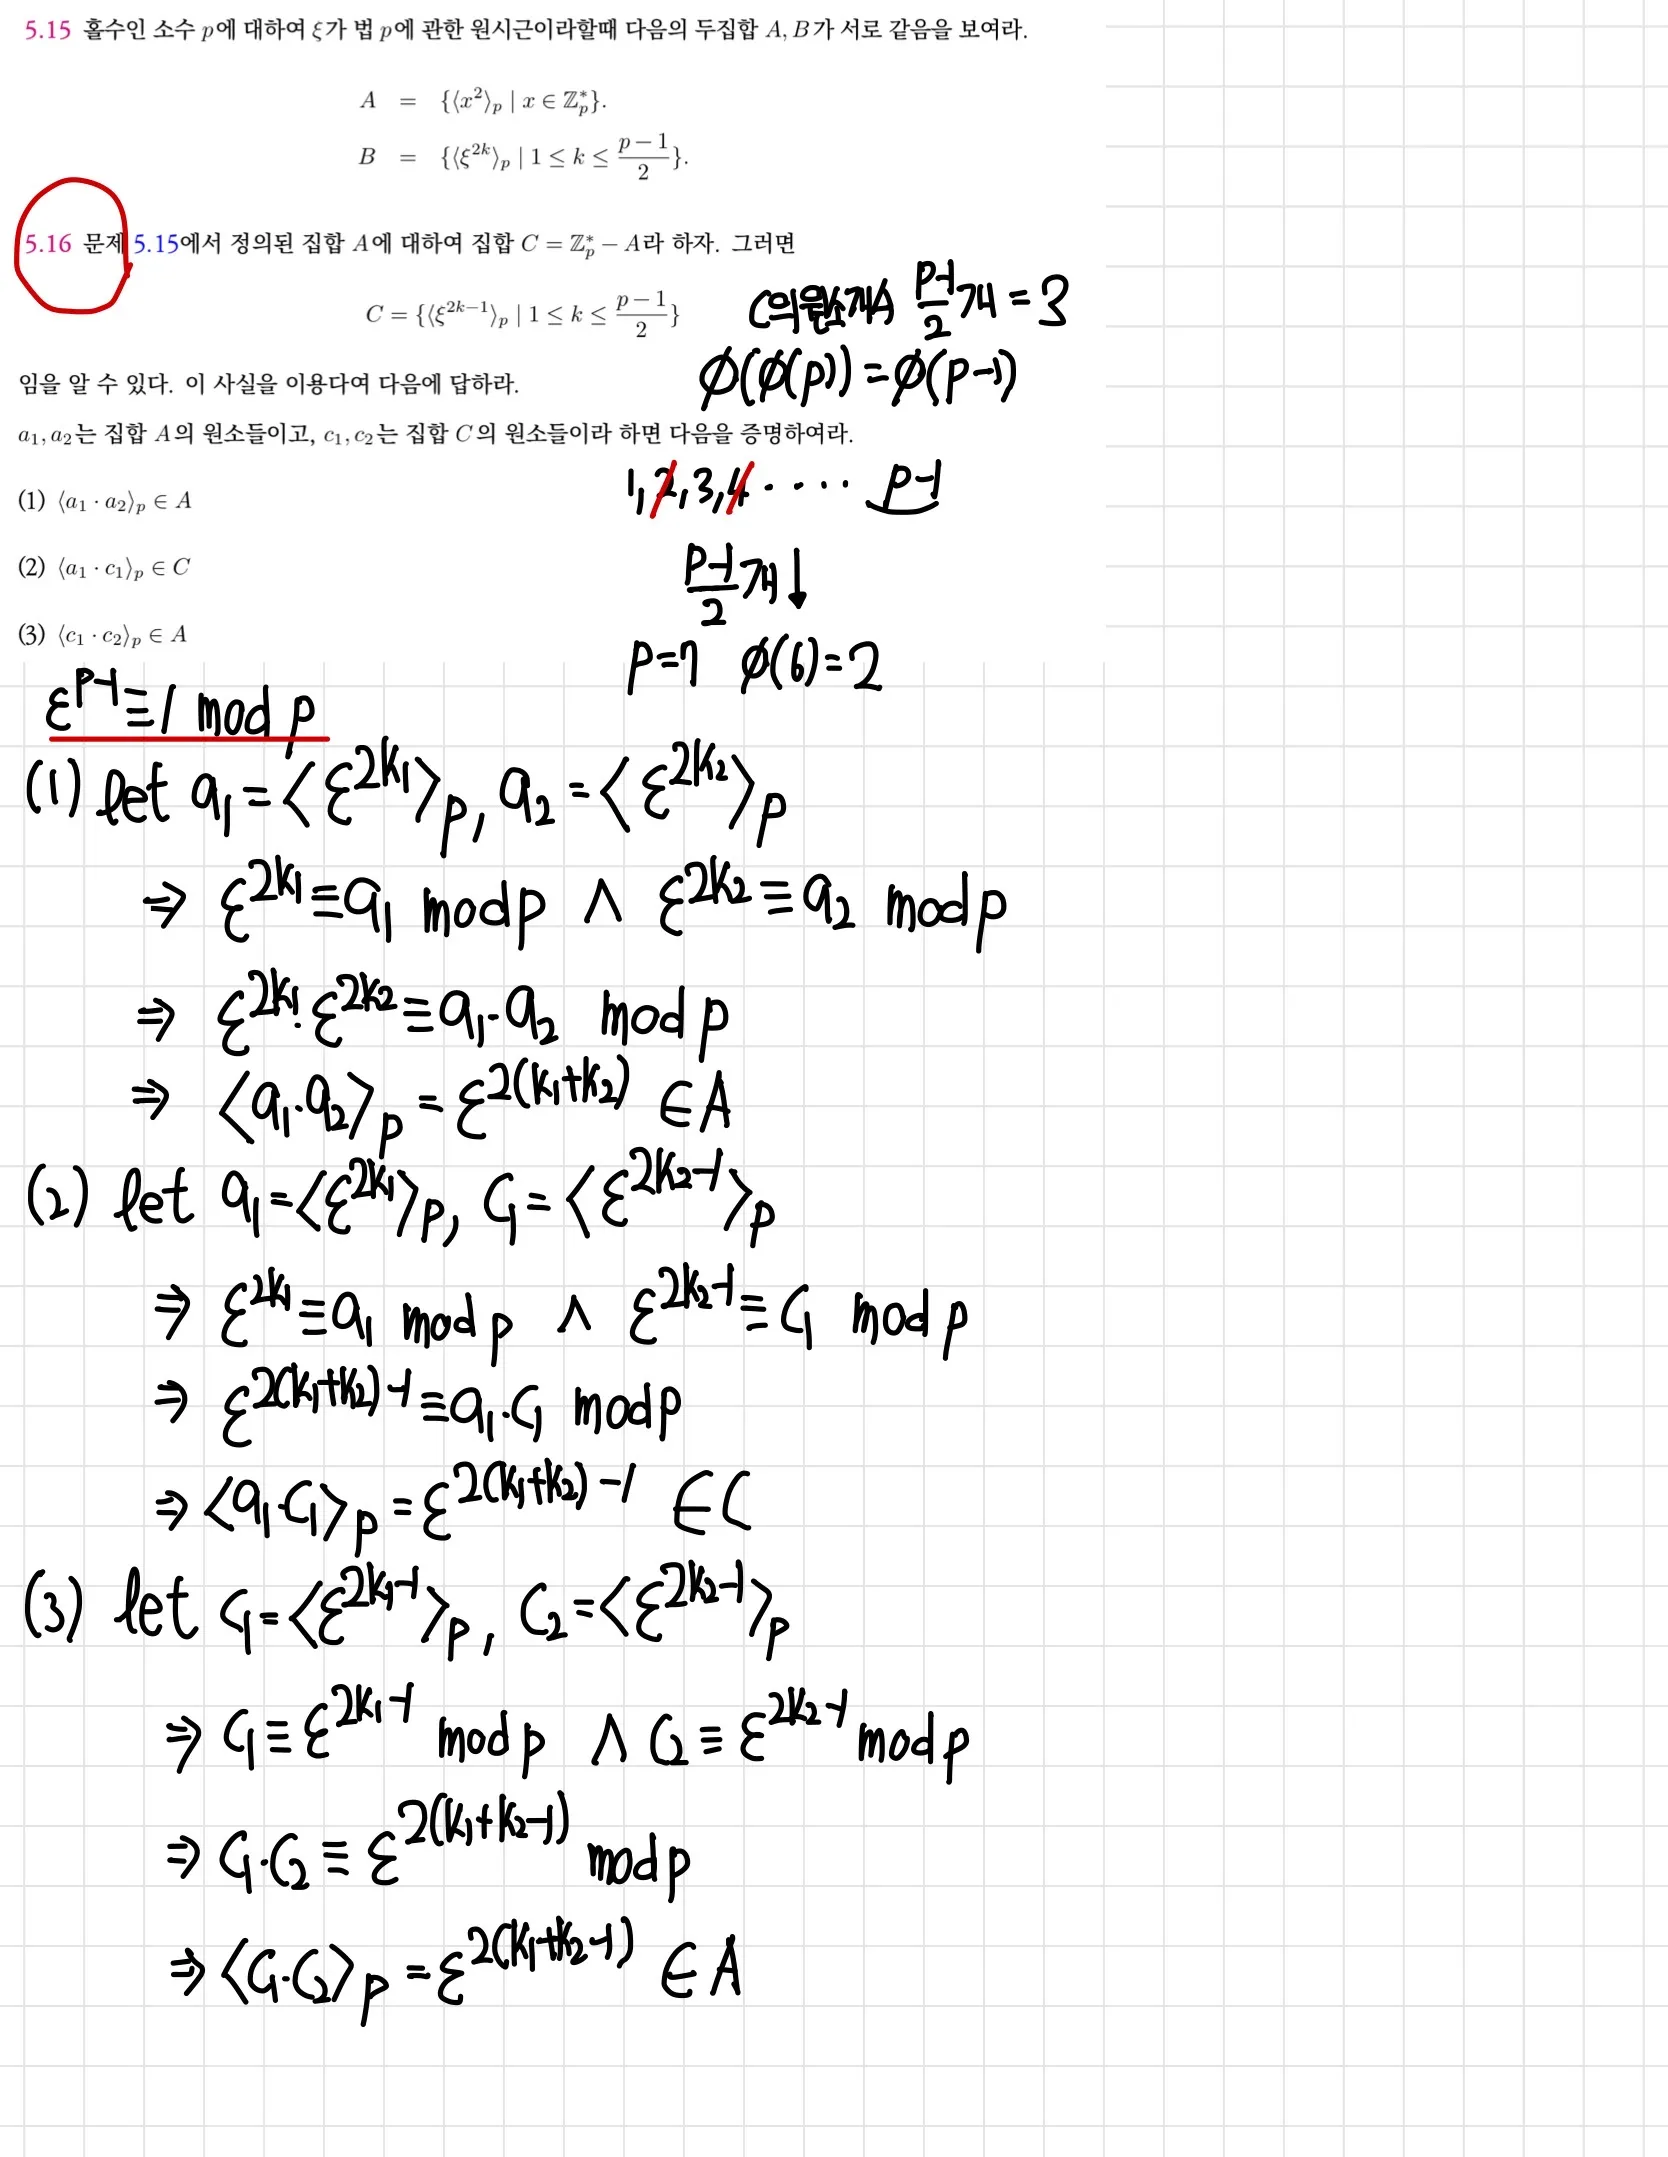 5.15 홀수인 소수 p에 대하여 ξ가 법 p에 관한 원시근이라할때 다음의 두집합 A, B가 서로 같음을 보여라.
A = {⟨x²⟩ₚ | x ∈ ℤₚ*}.
B = {⟨ξ^{2k}⟩ₚ | 1 ≤ k ≤ (p − 1)/2}.
5.16 문제 5.15에서 정의된 집합 A에 대하여 집합 C = ℤₚ* − A라 하자. 그러면
C = {⟨ξ^{2k−1}⟩ₚ | 1 ≤ k ≤ (p − 1)/2}
C의 원소개수 (p-1)/2 개 = 3
ø(ø(p)) = ø(p-1)
임을 알 수 있다. 이 사실을 이용다여 다음에 답하라.
a₁, a₂는 집합 A의 원소들이고, c₁, c₂는 집합 C의 원소들이라 하면 다음을 증명하여라.
(1) ⟨a₁ · a₂⟩ₚ ∈ A
1, 2, 3, 4 ····· p-1
(2) ⟨a₁ · c₁⟩ₚ ∈ C
(p-1)/2 개 ↓
(3) ⟨c₁ · c₂⟩ₚ ∈ A
p=7 ø(6)=2
ε^{p-1} ≡ 1 mod p
(1) let a₁ = ⟨ε^{2k₁}⟩ₚ, a₂ = ⟨ε^{2k₂}⟩ₚ
⇒ ε^{2k₁} ≡ a₁ mod p ∧ ε^{2k₂} ≡ a₂ mod p
⇒ ε^{2k₁}·ε^{2k₂} ≡ a₁·a₂ mod p
⇒ ⟨a₁·a₂⟩ₚ = ε^{2(k₁+k₂)} ∈ A
(2) let a₁ = ⟨ε^{2k₁}⟩ₚ, c₁ = ⟨ε^{2k₂-1}⟩ₚ
⇒ ε^{2k₁} ≡ a₁ mod p ∧ ε^{2k₂-1} ≡ c₁ mod p
⇒ ε^{2(k₁+k₂)-1} ≡ a₁·c₁ mod p
⇒ ⟨a₁·c₁⟩ₚ = ε^{2(k₁+k₂)-1} ∈ C
(3) let c₁ = ⟨ε^{2k₁-1}⟩ₚ, c₂ = ⟨ε^{2k₂-1}⟩ₚ
⇒ c₁ ≡ ε^{2k₁-1} mod p ∧ c₂ ≡ ε^{2k₂-1} mod p
⇒ c₁·c₂ ≡ ε^{2(k₁+k₂-1)} mod p
⇒ ⟨c₁·c₂⟩ₚ = ε^{2(k₁+k₂-1)} ∈ A